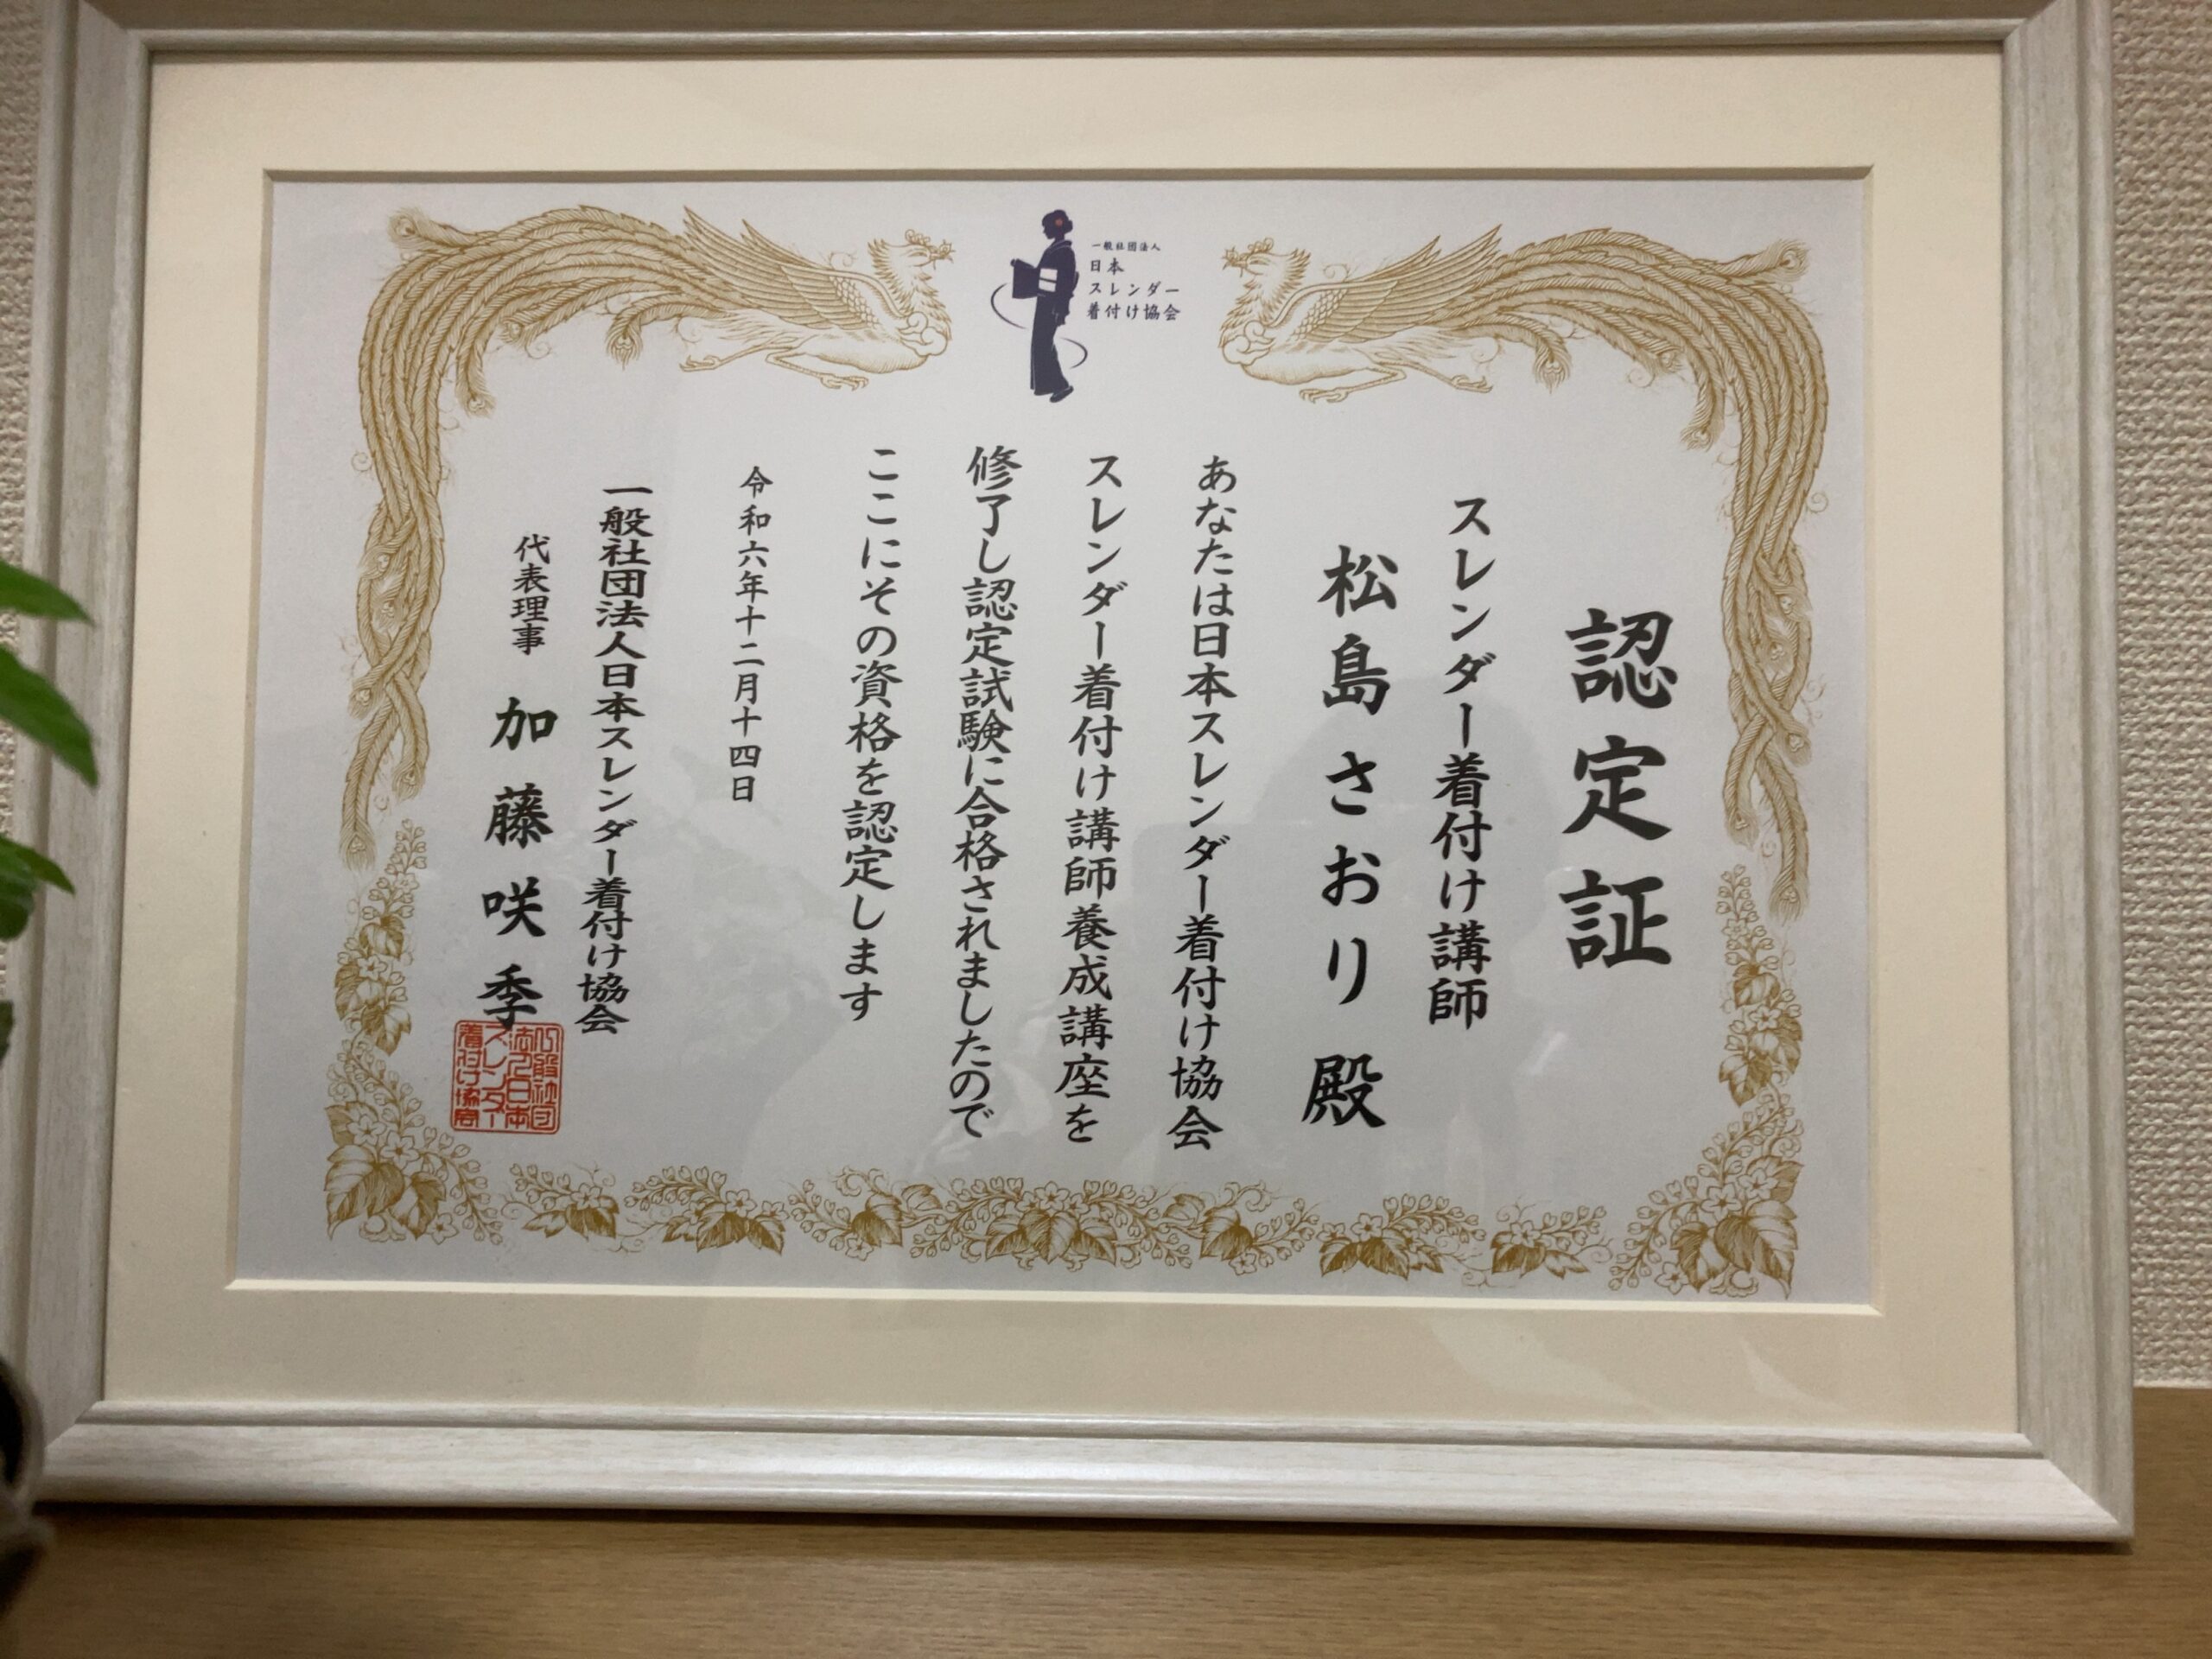 一般社団法人
日本
スレンダー
着付け協会
認定証
スレンダー着付け講師
松島さおり 殿
あなたは日本スレンダー着付け協会
スレンダー着付け講師養成講座を
修了し認定試験に合格されましたので
ここにその資格を認定します
令和六年十二月十四日
一般社団法人日本スレンダー着付け協会
代表理事 加藤咲季
一般社団
法人日本
スレンダー
着付け協会